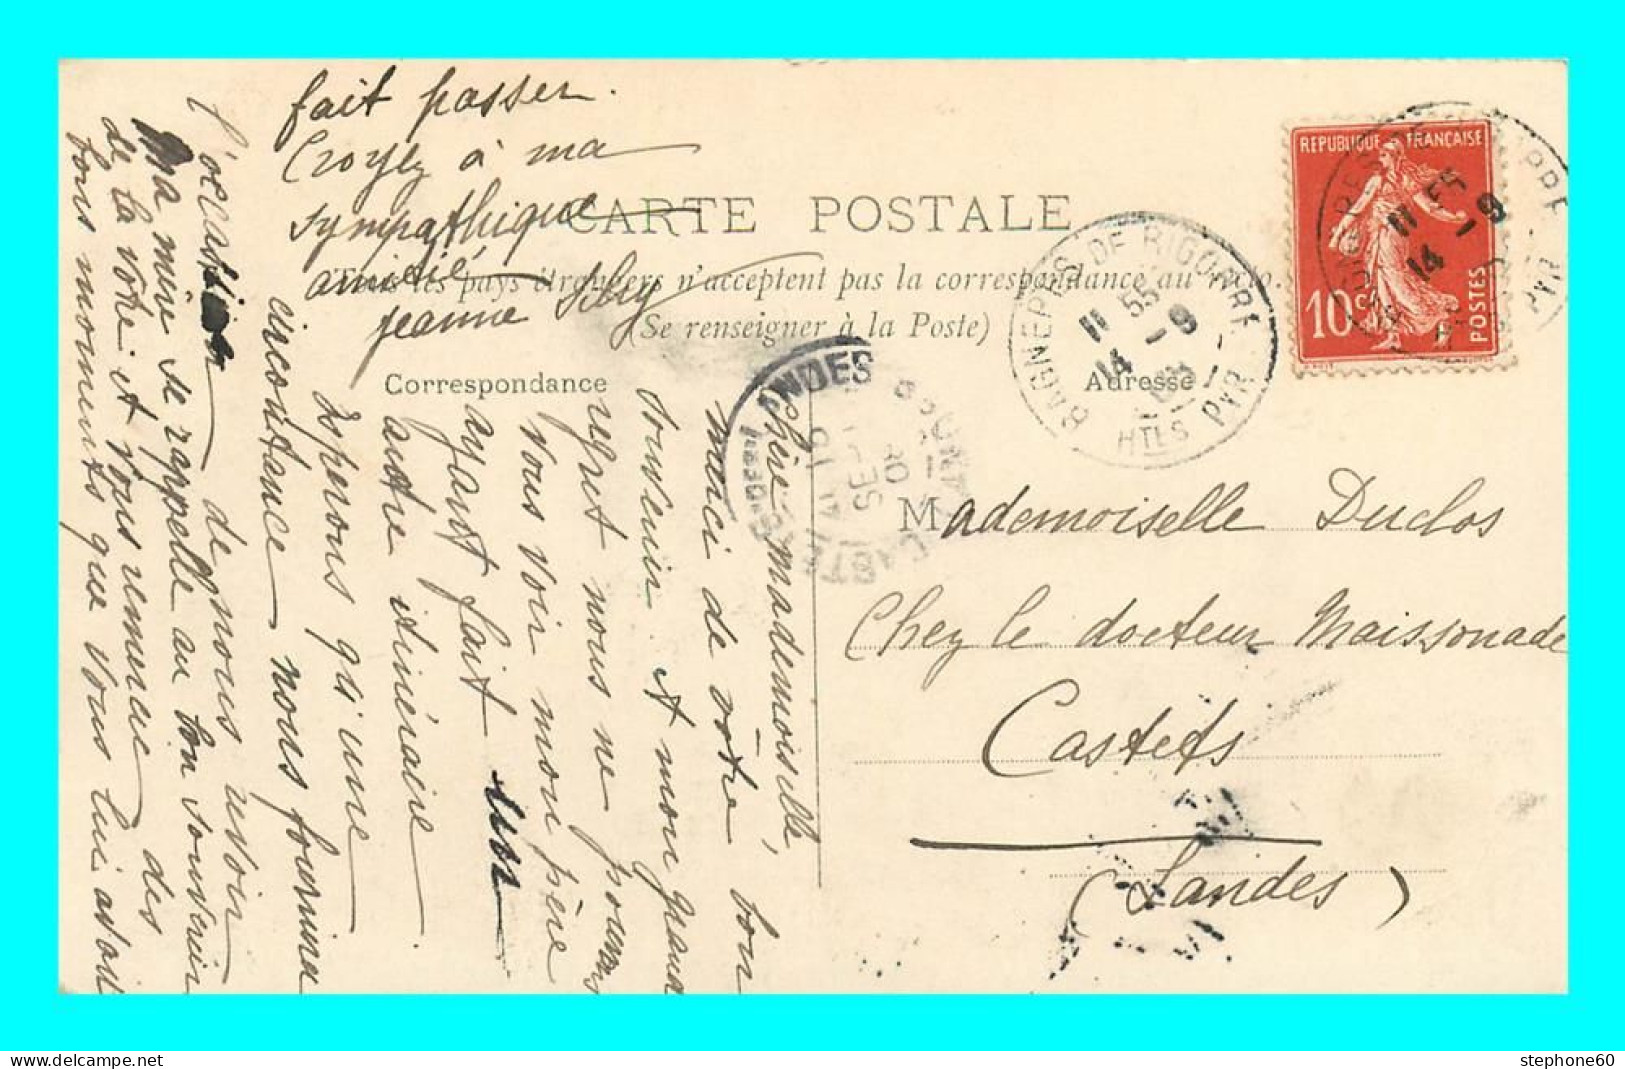 CARTE POSTALE
Tous les pays étrangers n'acceptent pas la correspondance au recto.
(Se renseigner à la Poste)
Correspondance
Adresse
REPUBLIQUE FRANÇAISE
10c
POSTES
BAGNERES DE BIGORRE
11 55
14 - 9
HTES PYR
LANDES
15
SEPT
08
Mademoiselle Duclos
Chez le docteur Maissonade
Castets
(Landes)
Chère mademoiselle,
merci de vôtre bon
souvenir. Et mon grand
regret nous ne pouvons
vous voir mon père
ayant fait un
autre itinéraire.
Espérons qu'une
circonstance nous fournira
l'occasion de nous revoir.
Ma mère se rappelle au bon souvenir
de la vôtre et vous remercie des
bons moments que vous lui avait
fait passer.
Croyez à ma
sympathique
amitié
Jeanne
stephone60